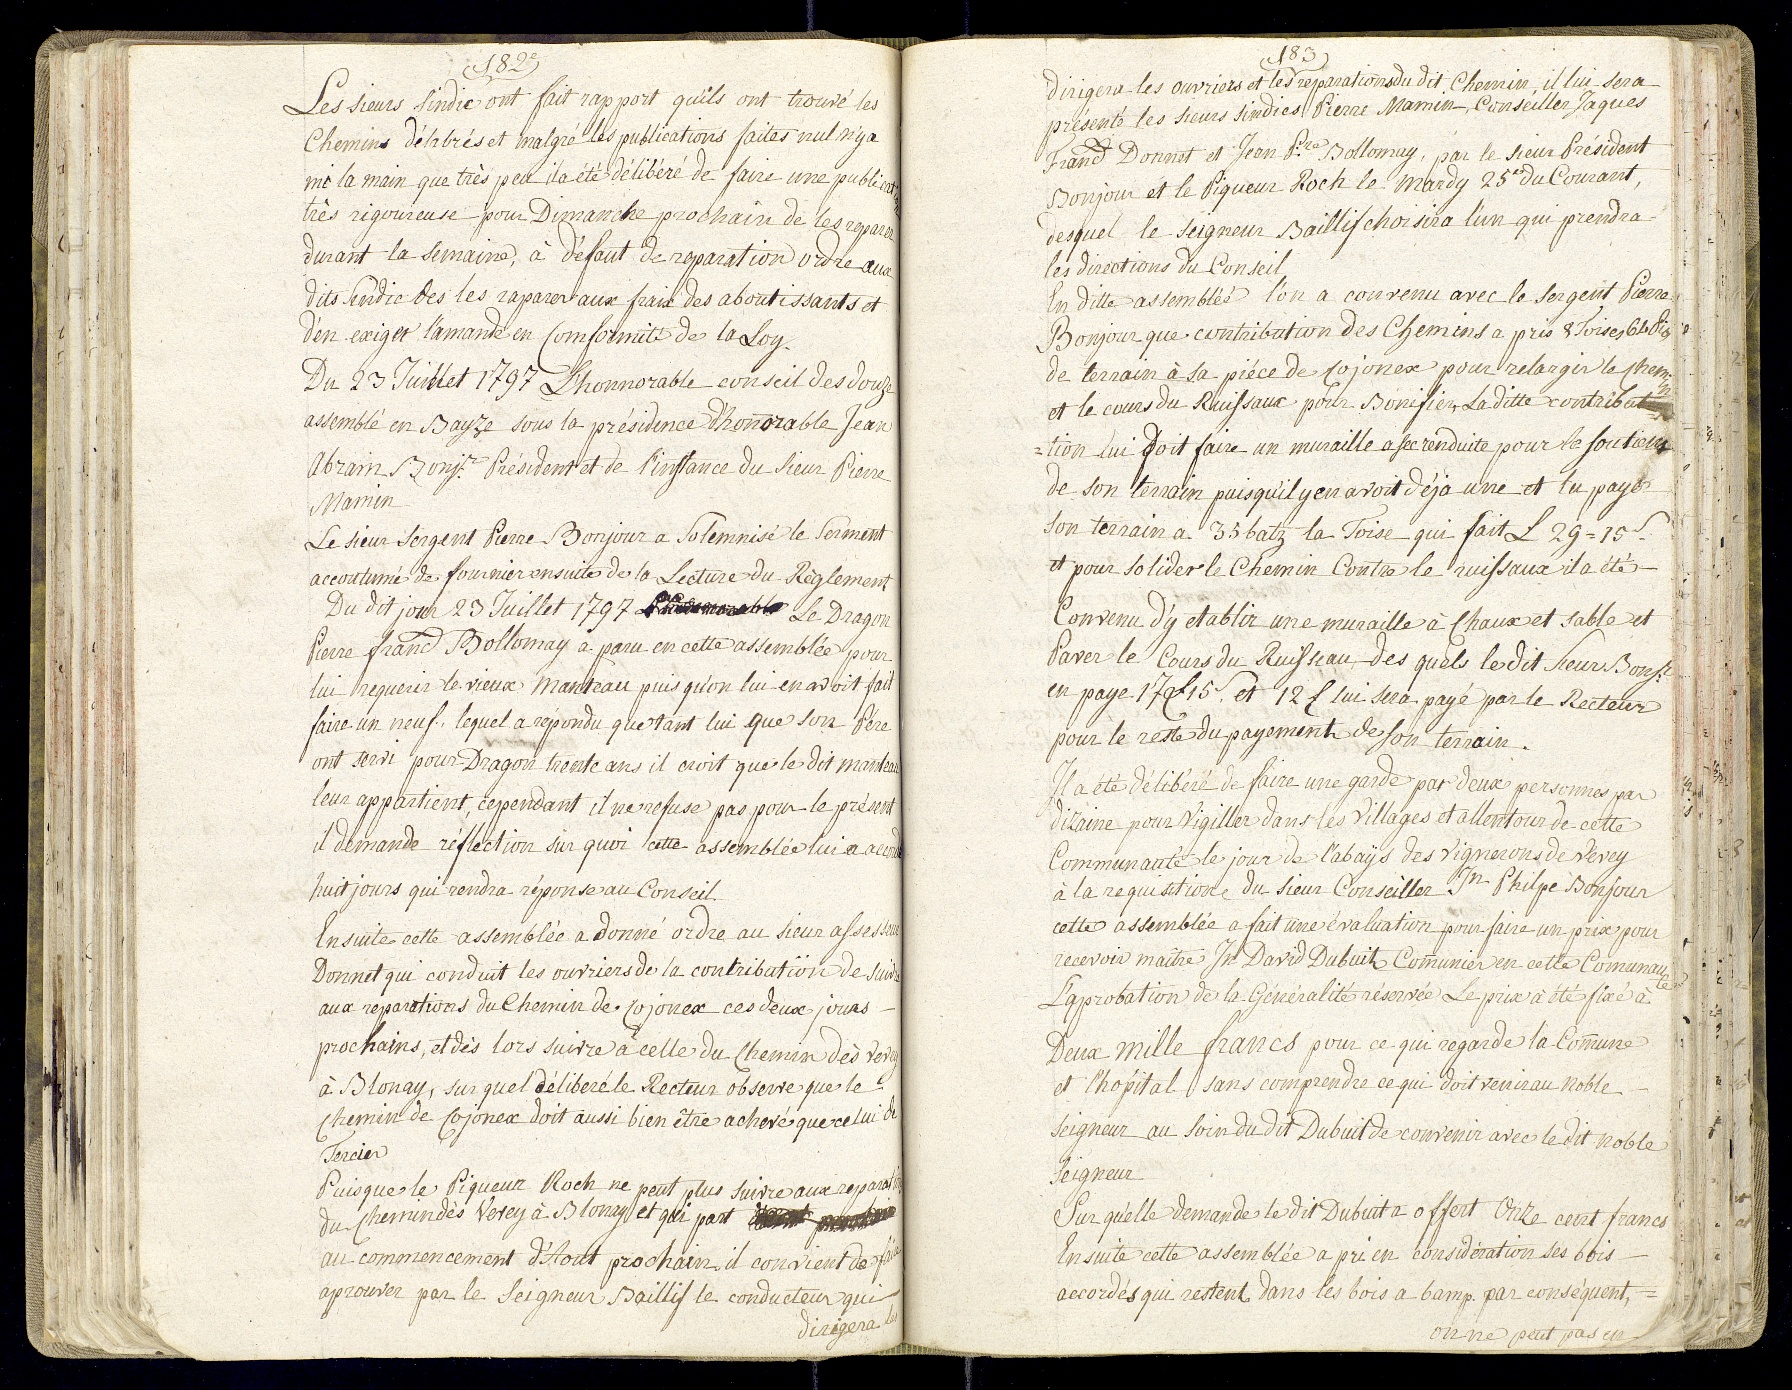 182
Les sieurs Sindic ont fait rapport qu'ils ont trouvé les
Chemins délabrés et malgré les publications faites nul n'y a
mi la main que très peu il a été délibéré de faire une publication
très rigoureuse pour Dimanche prochain de les reparer
durant la semaine, à défaut de reparation ordre aux
dits Sindic des les raparer aux frais des aboutissants et
d'en exiger l'amande en Comformité de la Loy.
Du 23 Juillet 1797 L'honnorable conseil des douze
assemblé en Bayze sous la présidence d'honorable Jean
Abram Bonj.r Président et de l'instance du Sieur Pierre
Mamin
Le sieur Sergent Pierre Bonjour a Solemnisé le Serment
accoutumé de fournier ensuite de la Lecture du Règlement
Du dit jour 23 Juillet 1797 Le Dragon
Pierre Franç Bollomay a paru en cette assemblée pour
lui requerir le vieux Manteau puis qu'on lui en avoit fait
faire un neuf. lequel a répondu que tant lui que son Père
ont servi pour Dragon trente ans il croit que le dit manteau
leur appartient, cependant il ne refuse pas pour le présent
il demande réflection sur quoi cette assemblée lui a accordé
huit jours qui rendra réponse au Conseil.
Ensuite cette assemblée a donné ordre au Sieur assesseur
Donnet qui conduit les ouvriers de la contribution de suivre
aux reparations du Chemin de Cojonex ces deux jours
prochains, et dès lors suivre à celle du Chemin dès Vevey
à Blonay, sur quel délibéré le Recteur observe que le
chemin de Cojonex doit aussi bien être achevé que celui de
Tercier
Puisque le Piqueur Roch ne peut plus suivre aux reparations
du Chemin dès Vevey à Blonay et qui part
au commencement d'Aout prochain, il convient de faire
aprouver par le Seigneur Baillif le conducteur qui
dirigera les
183
dirigera les ouvriers et les reparations du dit Chemin, il lui sera
présenté les sieurs sindics Pierre Mamin, Conseiller Jaques
Franç Donnet et Jean P.re Bollomay, par le sieur Président
Bonjour et le Piqueur Roch le Mardy 25e du Courant,
desquel le Seigneur Baillif choisira l'un qui prendra
les directions du Conseil
En ditte assemblée l'on a convenu avec le Sergent Pierre
Bonjour que contribution des Chemins a pris 8 Toises
de terrain à sa piéce de Cojonex pour relargir le Chemin
et le cours du Ruissaux pour Bonifier, La ditte contribut
=tion lui doit faire un muraille a sec enduite pour le soutient
de son terrain puisqu'il y en avoit déja une et lu payer
son terrain a 35 batz la Toise qui fait L 29=15 s.
et pour solider le Chemin Contre le ruissaux il a été
Convenu d'y etablir une muraille à Chaux et sable et
Paver le Cours du Ruisseau, des quels le dit Sieur Bonj.r
en paye 17 L 15 s. et 12 L lui sera payé par le Recteur
pour le reste du payement de son terrain.
Il a été délibéré de faire une garde par deux personnes par
dizaine pour Vigiller dans les Villages et allentour de cette
Communauté le jour de l'abaÿs des Vignerons de Vevey
à la requisition du Sieur Conseiller Jn Philpe Bonjour
cette assemblée a fait une évaluation pour faire un prix pour
recevoir maître Jn David Dubuit Com̄unier en cette Comunauté
L'aprobation de la Généralité réservée Le prix a été fixé à
Deux mille francs pour ce qui regarde la Com̄une
et l'hopital sans comprendre ce qui doit venir au Noble
Seigneur au soin du dit Dubuit de convenir avec le dit noble
Seigneur
Sur qu'elle demande le dit Dubuit a offert Onze cent francs
Ensuite cette assemblée a pri en considération ses bois
accordés qui restent dans les bois a bamp. par conséquent,=
on ne peut pas en